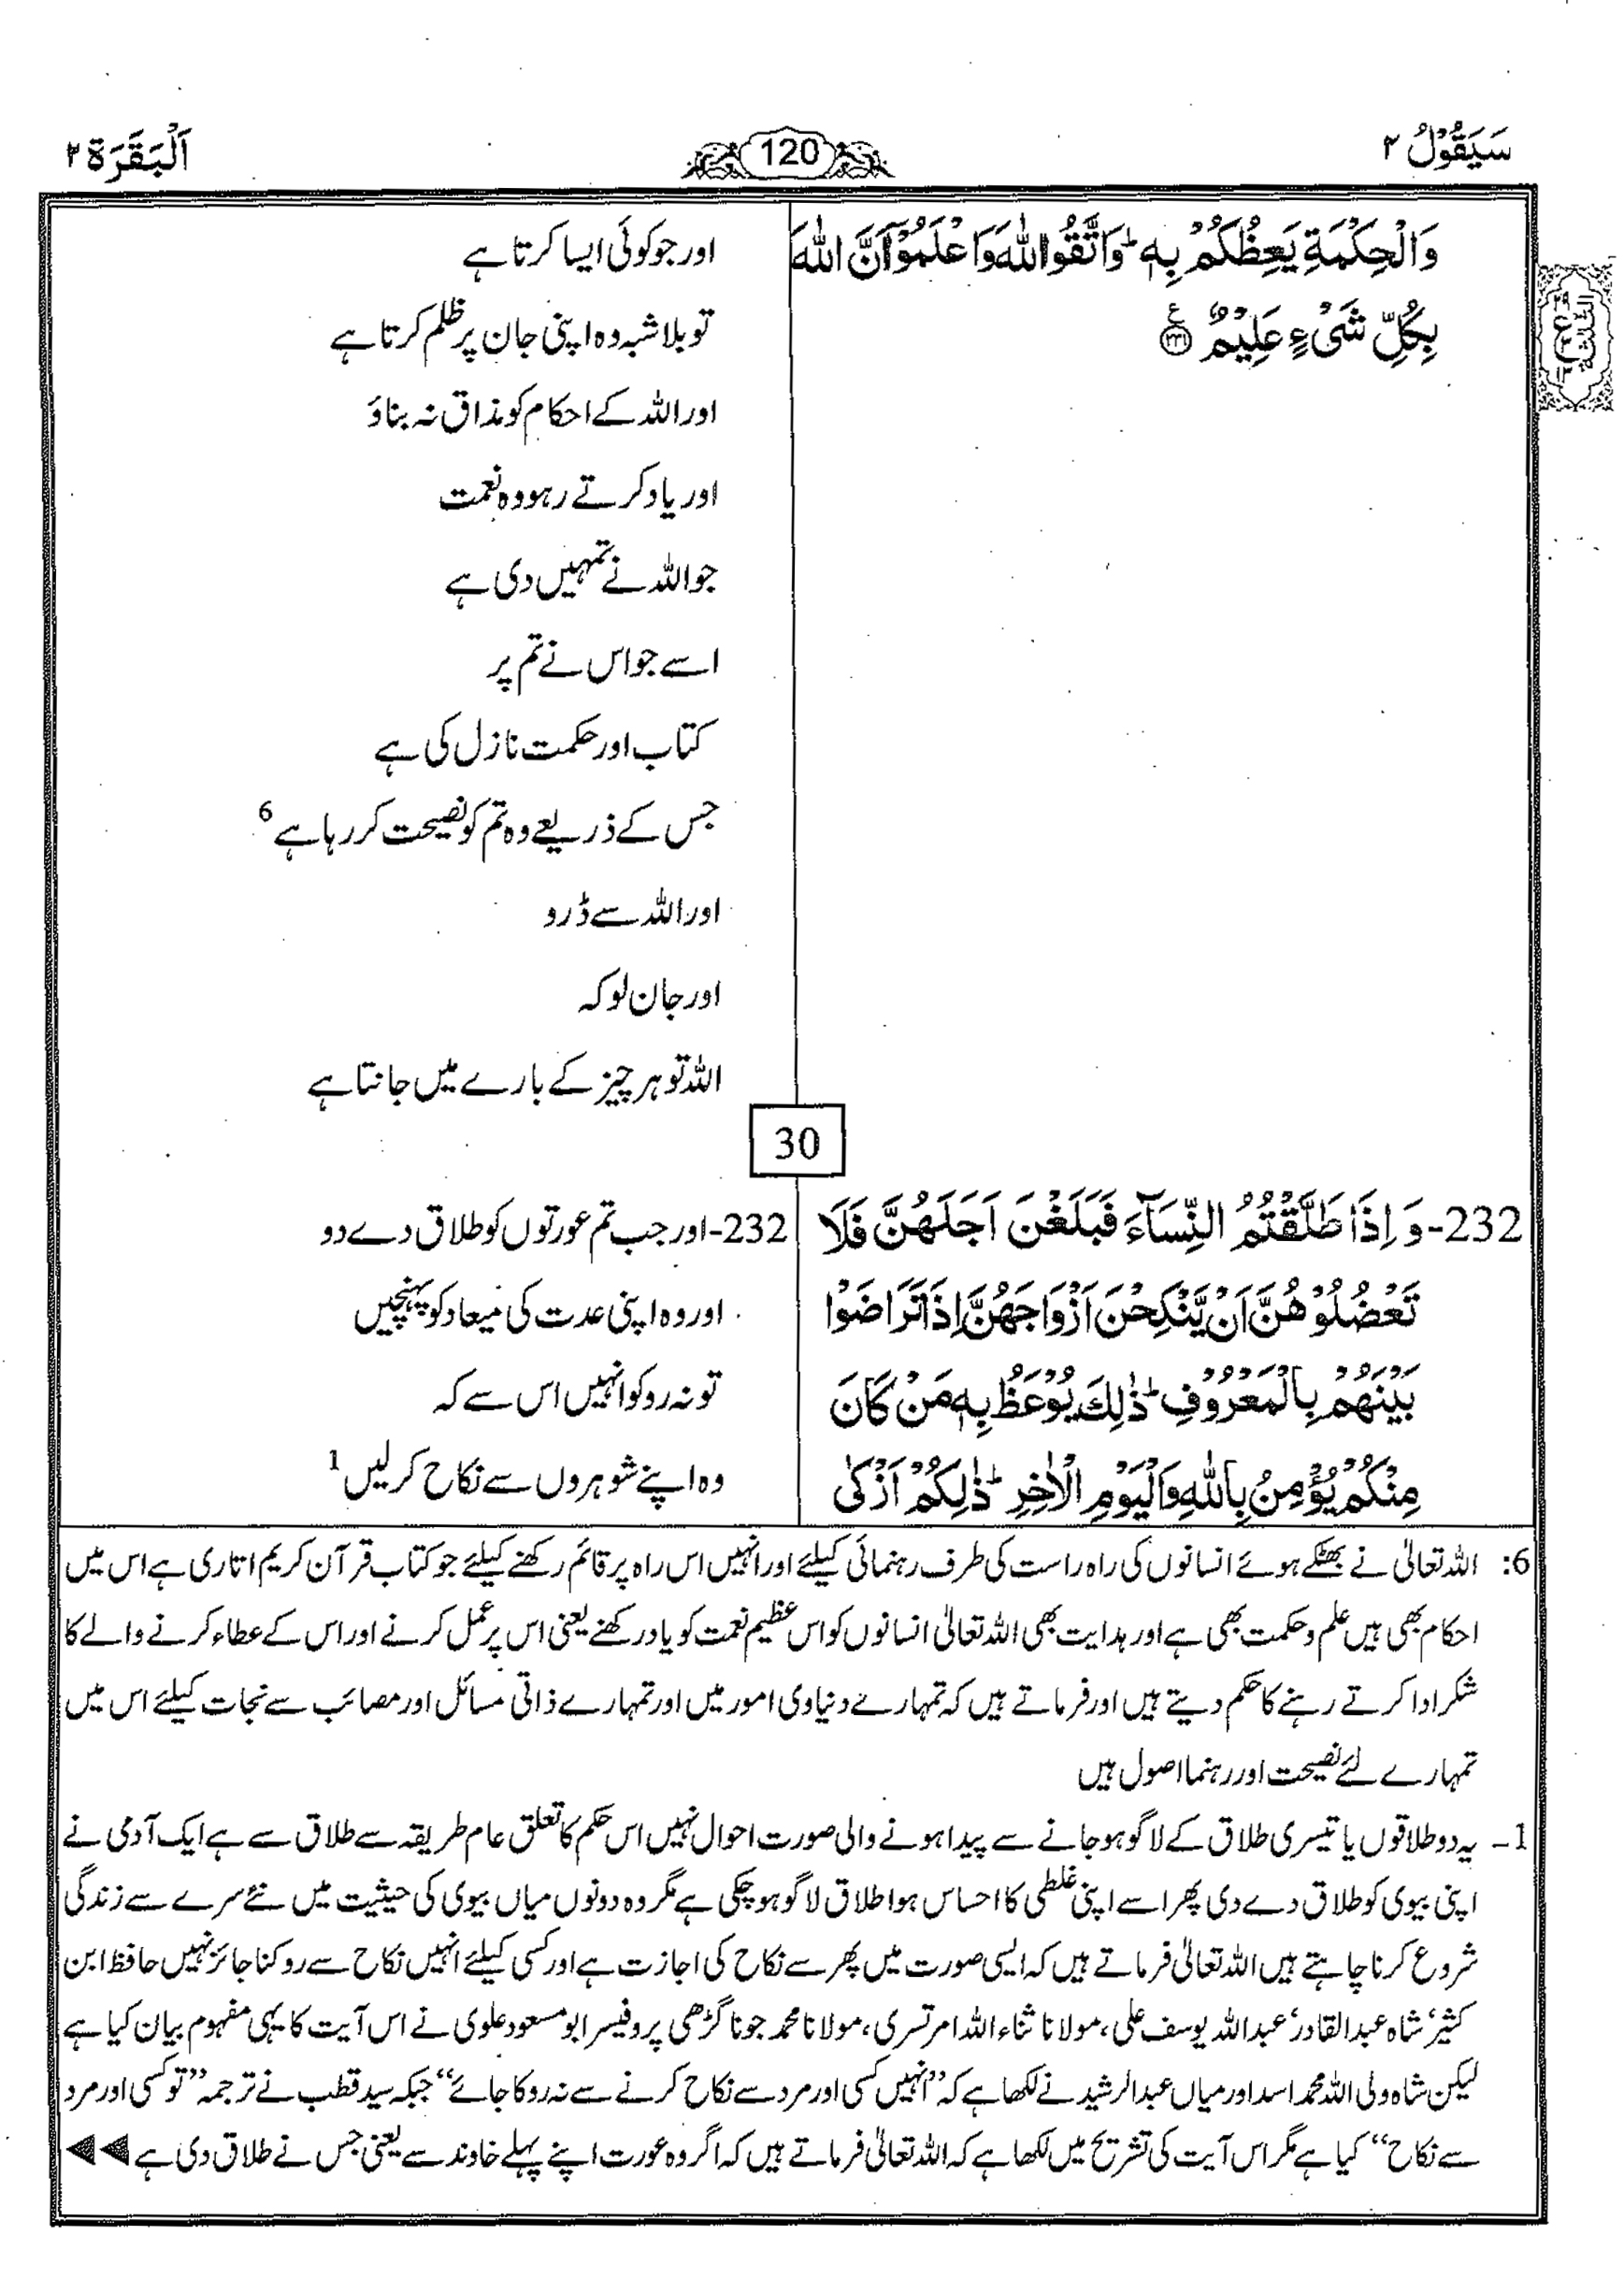 سَيَقُوْلُ ۲
120
اَلْبَقَرَة ۲
وَالْحِكْمَةِ يَعِظُكُمْ بِهٖ ؕ وَاتَّقُوا اللّٰهَ وَاعْلَمُوْٓا اَنَّ اللّٰهَ
بِكُلِّ شَىْءٍ عَلِيْمٌ ۝۲۳۱
ع
الثلثة
اور جو کوئی ایسا کرتا ہے
تو بلاشبہ وہ اپنی جان پر ظلم کرتا ہے
اور اللہ کے احکام کو مذاق نہ بناؤ
اور یاد کرتے رہو وہ نعمت
جو اللہ نے تمہیں دی ہے
اسے جو اس نے تم پر
کتاب اور حکمت نازل کی ہے
جس کے ذریعے وہ تم کو نصیحت کر رہا ہے 6
اور اللہ سے ڈرو
اور جان لو کہ
اللہ تو ہر چیز کے بارے میں جانتا ہے
30
232- وَ اِذَا طَلَّقْتُمُ النِّسَآءَ فَبَلَغْنَ اَجَلَهُنَّ فَلَا
تَعْضُلُوْهُنَّ اَنْ يَّنْكِحْنَ اَزْوَاجَهُنَّ اِذَا تَرَاضَوْا
بَيْنَهُمْ بِالْمَعْرُوْفِ ؕ ذٰلِكَ يُوْعَظُ بِهٖ مَنْ كَانَ
مِنْكُمْ يُؤْمِنُ بِاللّٰهِ وَالْيَوْمِ الْاٰخِرِ ؕ ذٰلِكُمْ اَزْكٰى
232- اور جب تم عورتوں کو طلاق دے دو
اور وہ اپنی عدت کی میعاد کو پہنچیں
تو نہ روکو انہیں اس سے کہ
وہ اپنے شوہروں سے نکاح کر لیں 1
6: اللہ تعالیٰ نے بھٹکے ہوئے انسانوں کی راہ راست کی طرف رہنمائی کیلئے اور انہیں اس راہ پر قائم رکھنے کیلئے جو کتاب قرآن کریم اتاری ہے اس میں
احکام بھی ہیں علم و حکمت بھی ہے اور ہدایت بھی اللہ تعالیٰ انسانوں کو اس عظیم نعمت کو یاد رکھنے یعنی اس پر عمل کرنے اور اس کے عطاء کرنے والے کا
شکر ادا کرتے رہنے کا حکم دیتے ہیں اور فرماتے ہیں کہ تمہارے دنیاوی امور میں اور تمہارے ذاتی مسائل اور مصائب سے نجات کیلئے اس میں
تمہارے لئے نصیحت اور رہنما اصول ہیں
1- یہ دو طلاقوں یا تیسری طلاق کے لاگو ہو جانے سے پیدا ہونے والی صورت احوال نہیں اس حکم کا تعلق عام طریقہ سے طلاق سے ہے ایک آدمی نے
اپنی بیوی کو طلاق دے دی پھر اسے اپنی غلطی کا احساس ہوا طلاق لاگو ہو چکی ہے مگر وہ دونوں میاں بیوی کی حیثیت میں نئے سرے سے زندگی
شروع کرنا چاہتے ہیں اللہ تعالیٰ فرماتے ہیں کہ ایسی صورت میں پھر سے نکاح کی اجازت ہے اور کسی کیلئے انہیں نکاح سے روکنا جائز نہیں حافظ ابن
کثیر‘ شاہ عبدالقادر‘ عبداللہ یوسف علی، مولانا ثناء اللہ امرتسری، مولانا محمد جونا گڑھی پروفیسر ابو مسعود علوی نے اس آیت کا یہی مفہوم بیان کیا ہے
لیکن شاہ ولی اللہ محمد اسد اور میاں عبدالرشید نے لکھا ہے کہ ’’انہیں کسی اور مرد سے نکاح کرنے سے نہ روکا جائے‘‘ جبکہ سید قطب نے ترجمہ ’’تو کسی اور مرد
سے نکاح‘‘ کیا ہے مگر اس آیت کی تشریح میں لکھا ہے کہ اللہ تعالیٰ فرماتے ہیں کہ اگر وہ عورت اپنے پہلے خاوند سے یعنی جس نے طلاق دی ہے ◄◄